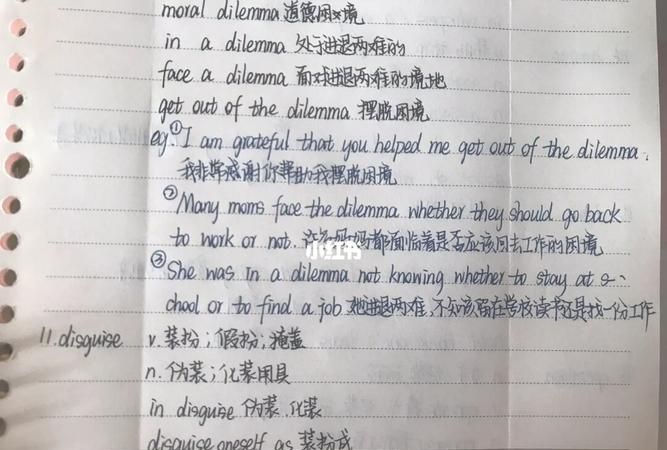 moral dilemma 道德困境
in a dilemma 处于进退两难的
face a dilemma 面对进退两难的境地
get out of the dilemma 摆脱困境
eg.①I am grateful that you helped me get out of the dilemma.
我非常感谢你帮助我摆脱困境
②Many moms face the dilemma whether they should go back
to work or not. 许多妈妈都面临着是否应该回去工作的困境
小红书
③She was in a dilemma not knowing whether to stay at s-
chool or to find a job 她进退两难,不知该留在学校读书还是找一份工作
11.disguise v.装扮;假扮;掩盖
n.伪装;化装用具
in disguise 伪装,化装
disguise oneself as 装扮成